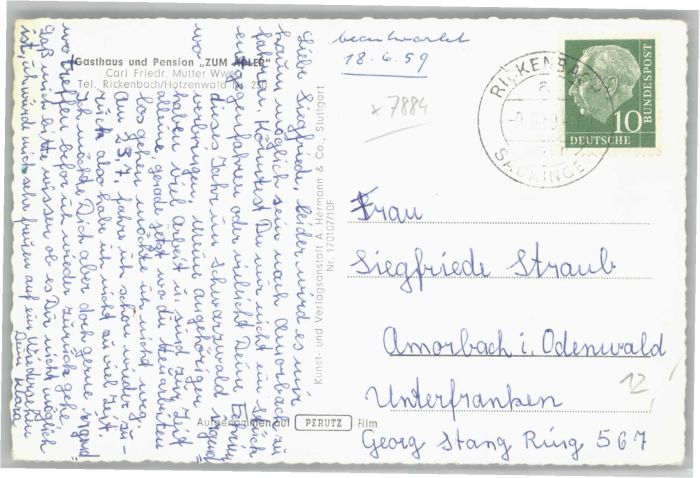 beantwortet
18.6.59
Gasthaus und Pension „ZUM ADLER"
Carl Friedr. Mutter Wwe.
Tel. Rickenbach/Hotzenwald Nr. 230
x 7884
RICKENBACH
a
SÄCKINGEN
10
DEUTSCHE
BUNDESPOST
Liebe Siegfriede, leider wird es mir
kaum möglich sein nach Amorbach zu
fahren. Könntest Du mir nicht ein Stück
entgegenfahren oder vielleicht Deine Ferien
dieses Jahr im Schwarzwald irgend
wo verbringen, meine Angehörigen
haben viel Arbeit u. sind zur Zeit
alleine, gerade jetzt wo die Heuarbeiten
los gehen möchte ich nicht weg.
Am 23.7. fahre ich schon wieder zu-
rück also habe ich nicht zu viel Zeit.
Ich möchte Dich aber doch gerne irgend
wo treffen bevor ich wieder zurück gehe,
laß mich bitte wissen ob es Dir nicht möglich
ist, ich würde mich sehr freuen auf ein Wiedersehen
Deine Klara
Kunst- und Verlagsanstalt A. Herrmann & Co., Stuttgart
Nr. 170107/10F
Frau
Siegfriede Straub
Amorbach i. Odenwald
Unterfranken
12,
Georg Stang Ring 567
Aufgenommen auf PERUTZ Film